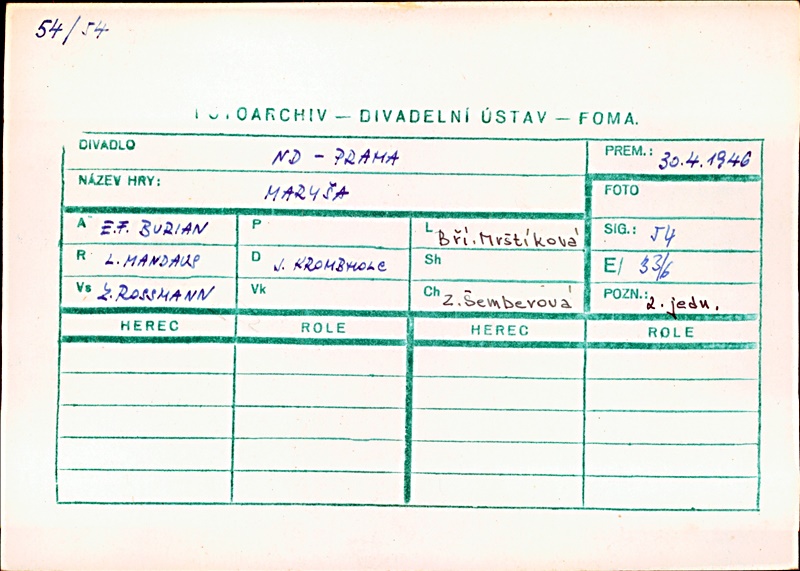 54/54
FOTOARCHIV — DIVADELNÍ ÚSTAV — FOMA.
DIVADLO ND - PRAHA
PREM.: 30.4.1946
NÁZEV HRY: MARYŠA
FOTO
A E.F. BURIAN
P
L Bří. Mrštíková
SIG.: 54
R L. MANDAUS
D J. KROMBHOLC
Sh
E/ 33/6
Vs Z. ROSSMANN
Vk
Ch Z. Šemberová
POZN.: 2. jedn.
HEREC ROLE HEREC ROLE